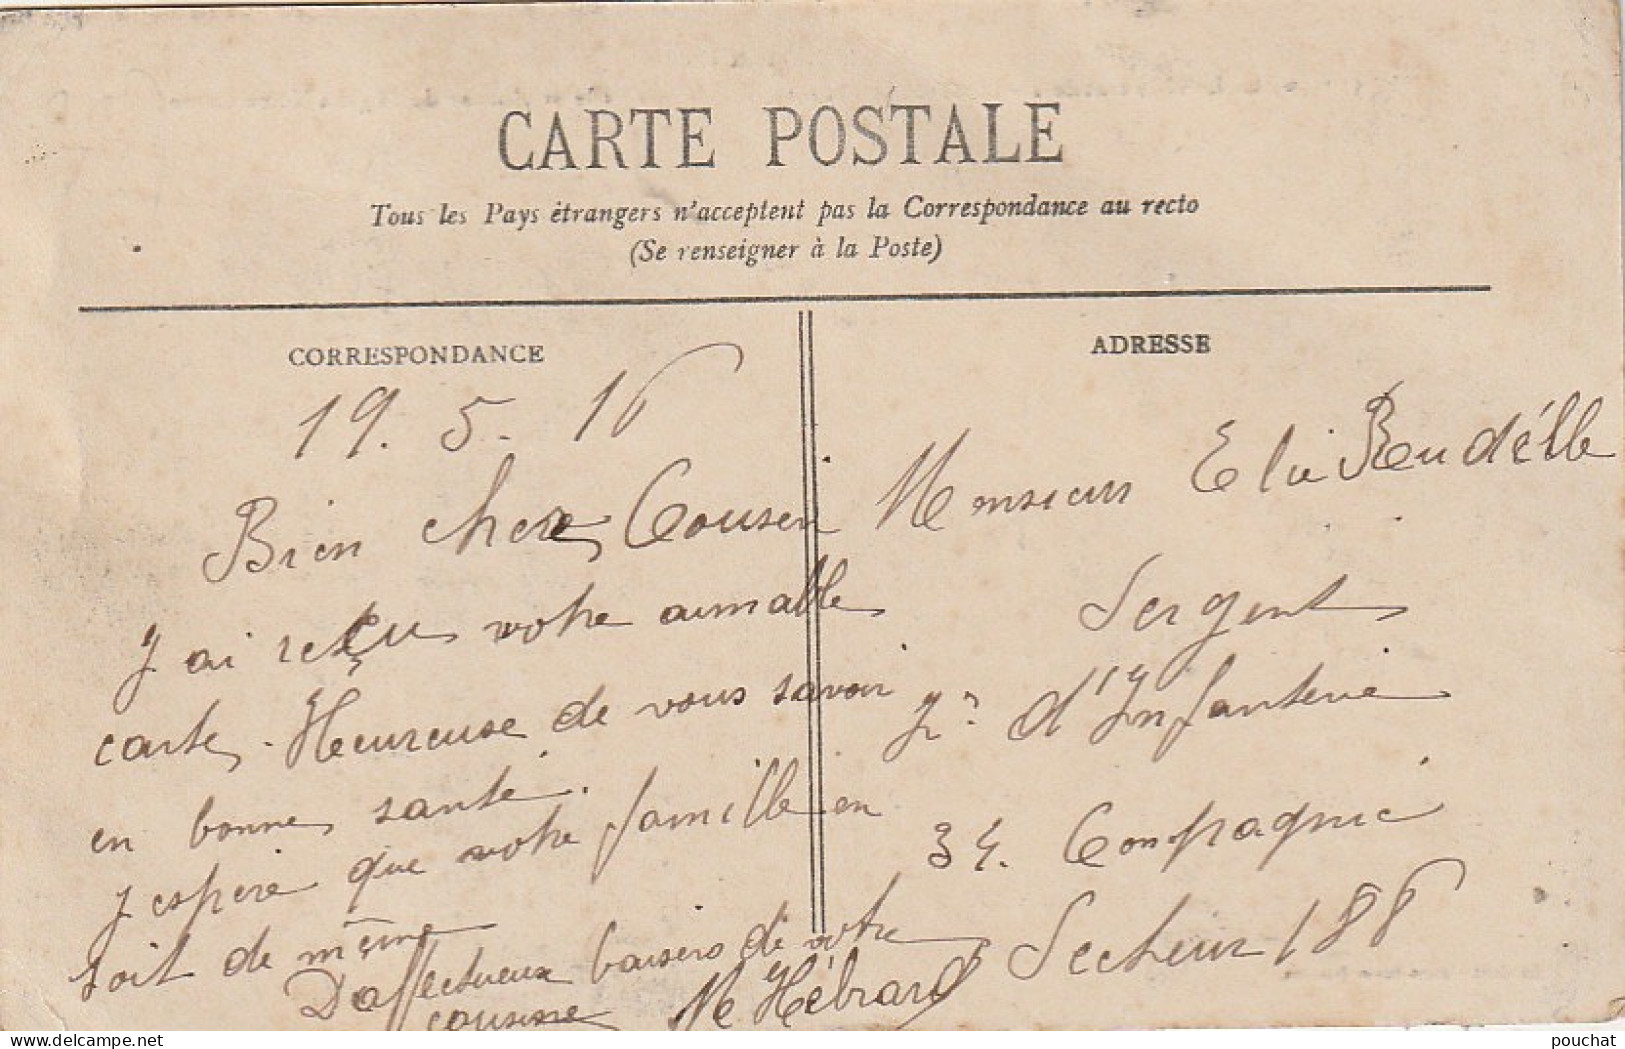 CARTE POSTALE
Tous les Pays étrangers n'acceptent pas la Correspondance au recto
(Se renseigner à la Poste)
CORRESPONDANCE
19. 5. 16
Bien cher Cousin
J'ai reçu votre aimable
carte. Heureuse de vous savoir
en bonne santé.
J'espère que votre famille en
soit de même
D'affectueux baisers de votre
cousine M Hébrard
ADRESSE
Monsieur Elie
Sergent
d'Infanterie
34. Compagnie
Secteur 186
delcampe.net
pouchat